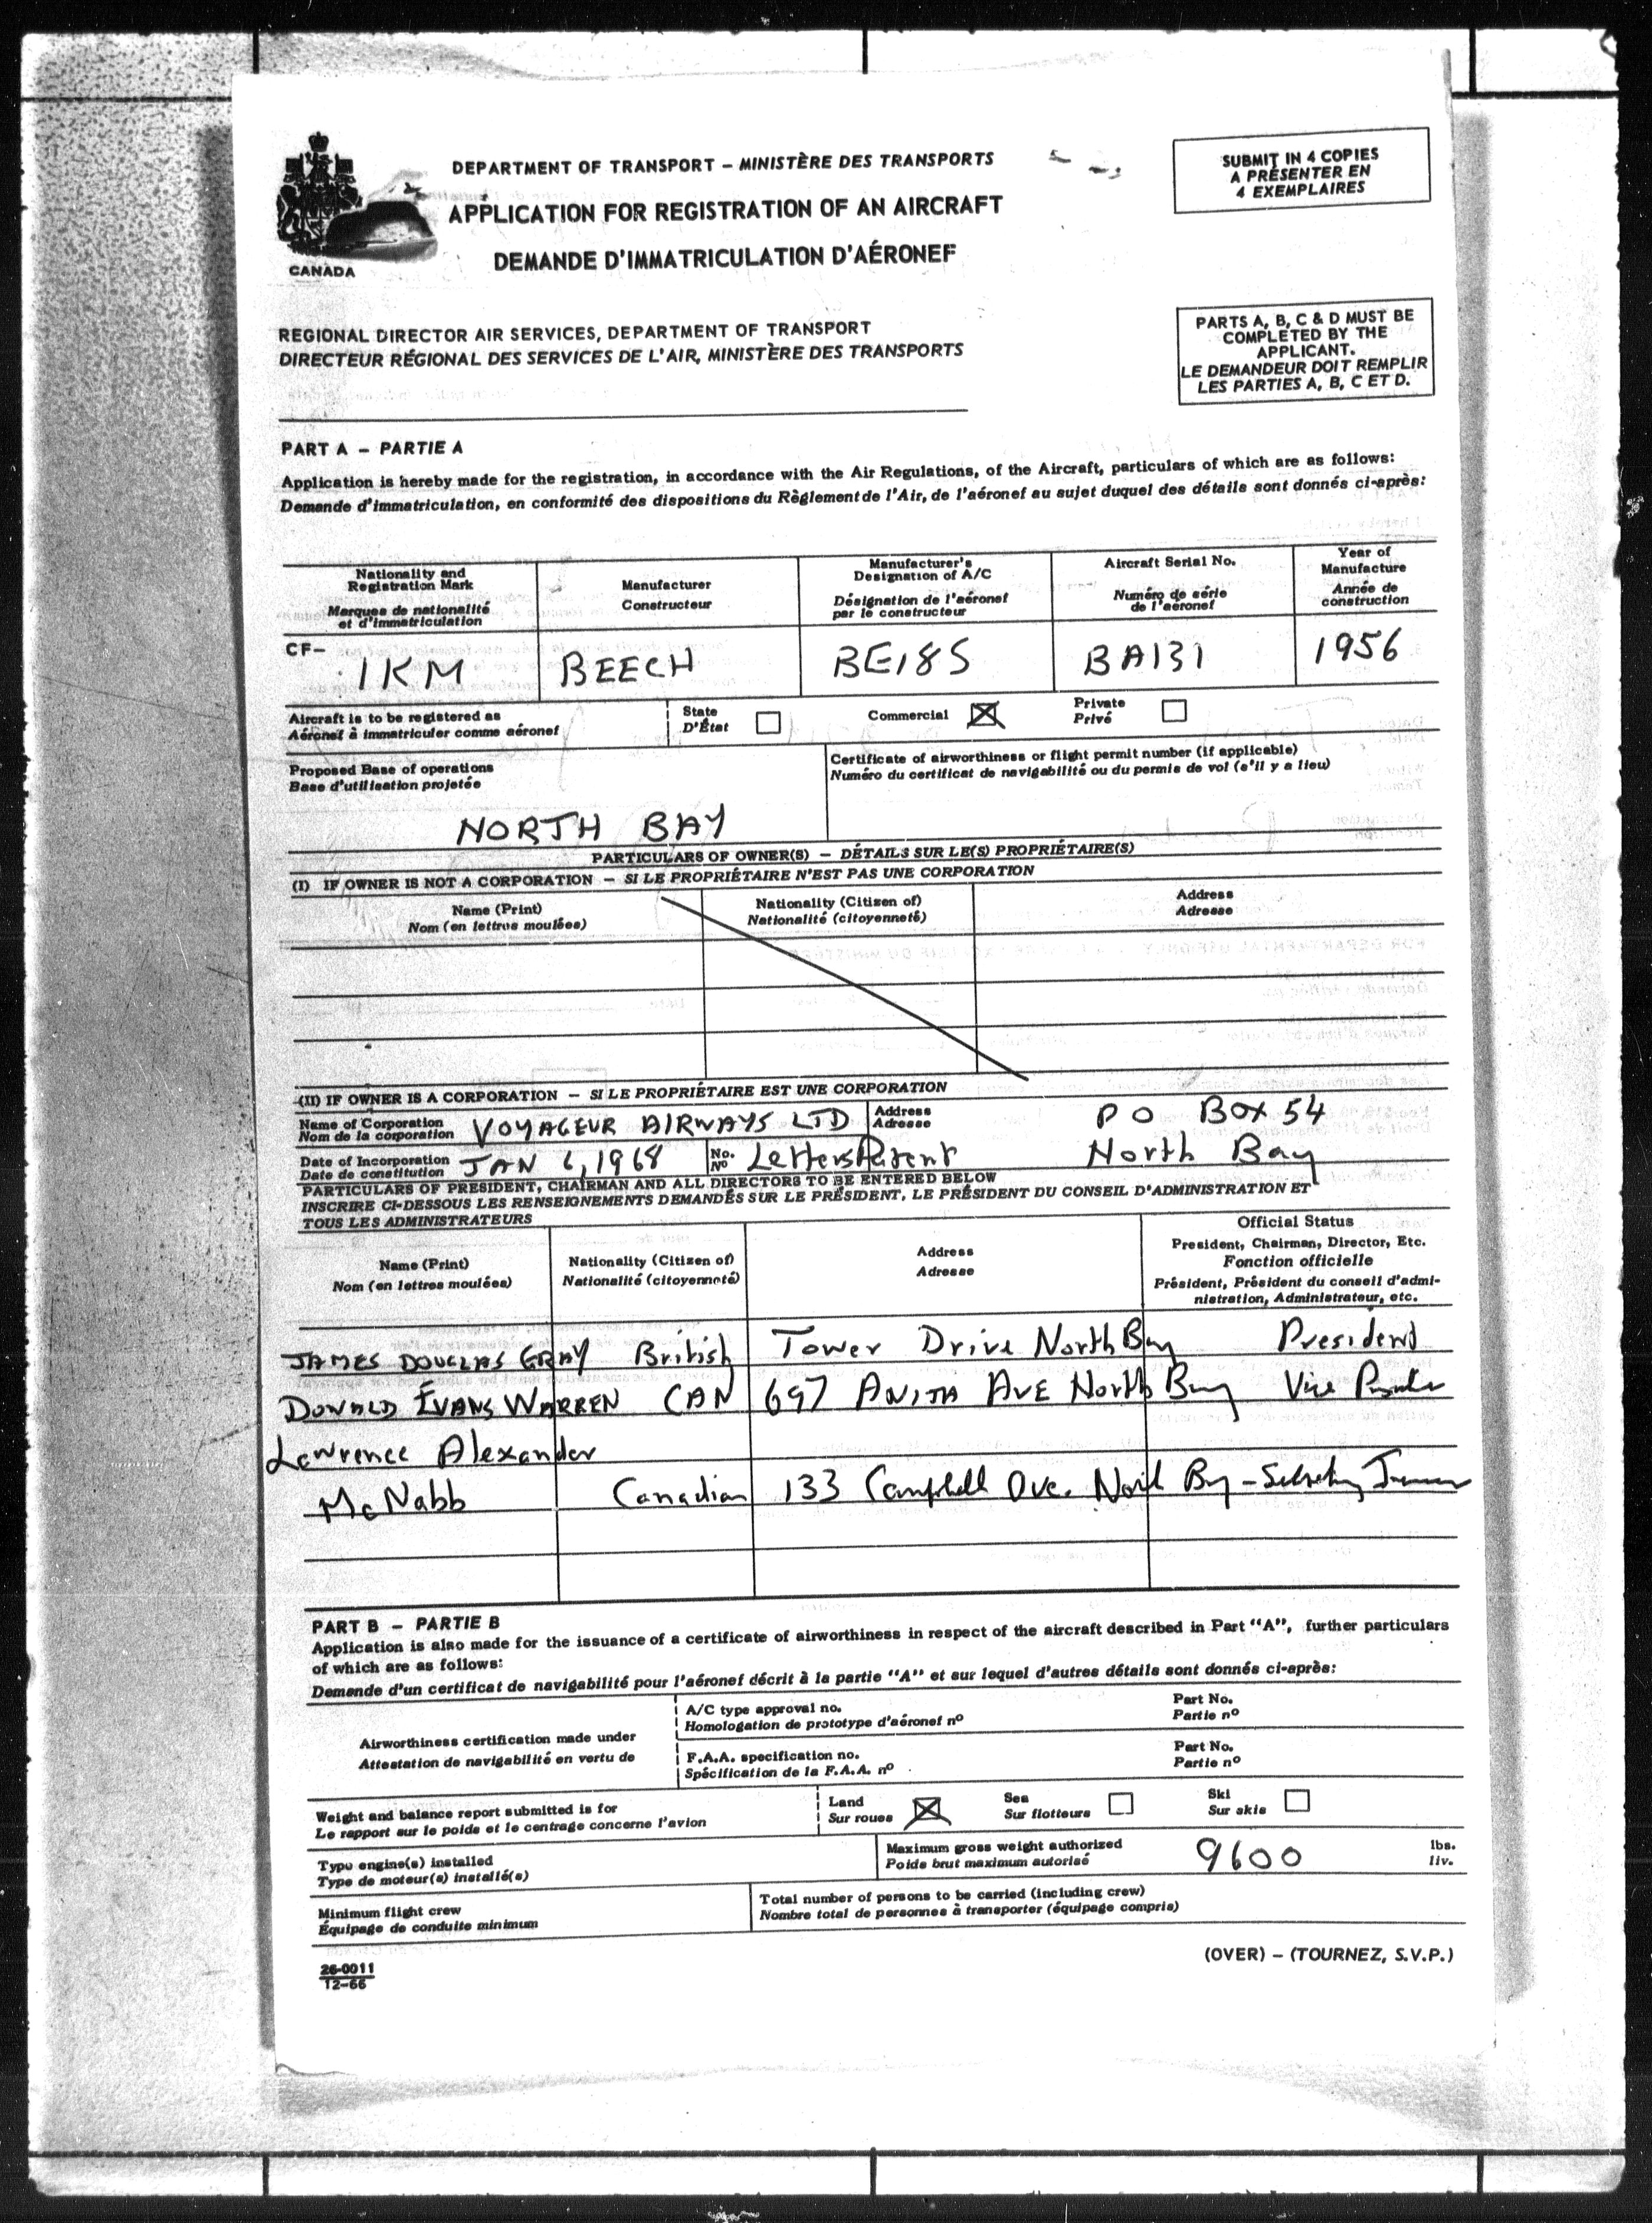 DEPARTMENT OF TRANSPORT – MINISTÈRE DES TRANSPORTS
APPLICATION FOR REGISTRATION OF AN AIRCRAFT
DEMANDE D'IMMATRICULATION D'AÉRONEF
CANADA
SUBMIT IN 4 COPIES
A PRÉSENTER EN
4 EXEMPLAIRES
REGIONAL DIRECTOR AIR SERVICES, DEPARTMENT OF TRANSPORT
DIRECTEUR RÉGIONAL DES SERVICES DE L'AIR, MINISTÈRE DES TRANSPORTS
PARTS A, B, C & D MUST BE
COMPLETED BY THE
APPLICANT.
LE DEMANDEUR DOIT REMPLIR
LES PARTIES A, B, C ET D.
PART A – PARTIE A
Application is hereby made for the registration, in accordance with the Air Regulations, of the Aircraft, particulars of which are as follows:
Demande d'immatriculation, en conformité des dispositions du Règlement de l'Air, de l'aéronef au sujet duquel des détails sont donnés ci-après:
Nationality and
Registration Mark
Marques de nationalité
et d'immatriculation
Manufacturer
Constructeur
Manufacturer's
Designation of A/C
Désignation de l'aéronef
par le constructeur
Aircraft Serial No.
Numéro de série
de l'aéronef
Year of
Manufacture
Année de
construction
CF– IKM BEECH BE18S BA131 1956
Aircraft is to be registered as
Aéronef à immatriculer comme aéronef
State
D'État
Commercial
Private
Privé
Proposed Base of operations
Base d'utilisation projetée
NORTH BAY
Certificate of airworthiness or flight permit number (if applicable)
Numéro du certificat de navigabilité ou du permis de vol (s'il y a lieu)
PARTICULARS OF OWNER(S) – DÉTAILS SUR LE(S) PROPRIÉTAIRE(S)
(I) IF OWNER IS NOT A CORPORATION – SI LE PROPRIÉTAIRE N'EST PAS UNE CORPORATION
Name (Print)
Nom (en lettres moulées)
Nationality (Citizen of)
Nationalité (citoyenneté)
Address
Adresse
(II) IF OWNER IS A CORPORATION – SI LE PROPRIÉTAIRE EST UNE CORPORATION
Name of Corporation
Nom de la corporation
VOYAGEUR AIRWAYS LTD
Address
Adresse
PO BOX 54
North Bay
Date of Incorporation
Date de constitution
JAN 6, 1968
No.
Nº
Letters Patent
PARTICULARS OF PRESIDENT, CHAIRMAN AND ALL DIRECTORS TO BE ENTERED BELOW
INSCRIRE CI-DESSOUS LES RENSEIGNEMENTS DEMANDÉS SUR LE PRÉSIDENT, LE PRÉSIDENT DU CONSEIL D'ADMINISTRATION ET
TOUS LES ADMINISTRATEURS
Name (Print)
Nom (en lettres moulées)
Nationality (Citizen of)
Nationalité (citoyenneté)
Address
Adresse
Official Status
President, Chairman, Director, Etc.
Fonction officielle
Président, Président du conseil d'admi-
nistration, Administrateur, etc.
JAMES DOUGLAS GRAY British Tower Drive North Bay President
DONALD EVANS WARREN CAN 697 ANITA AVE North Bay Vice
Lawrence Alexander
McNabb Canadian 133 Campbell Ave. North Bay –
PART B – PARTIE B
Application is also made for the issuance of a certificate of airworthiness in respect of the aircraft described in Part "A", further particulars
of which are as follows:
Demande d'un certificat de navigabilité pour l'aéronef décrit à la partie "A" et sur lequel d'autres détails sont donnés ci-après:
Airworthiness certification made under
Attestation de navigabilité en vertu de
A/C type approval no.
Homologation de prototype d'aéronef nº
Part No.
Partie nº
F.A.A. specification no.
Spécification de la F.A.A. nº
Part No.
Partie nº
Weight and balance report submitted is for
Le rapport sur le poids et le centrage concerne l'avion
Land
Sur roues
Sea
Sur flotteurs
Ski
Sur skis
Type engine(s) installed
Type de moteur(s) installé(s)
Maximum gross weight authorized
Poids brut maximum autorisé
9600
lbs.
liv.
Minimum flight crew
Équipage de conduite minimum
Total number of persons to be carried (including crew)
Nombre total de personnes à transporter (équipage compris)
26-0011
12–66
(OVER) – (TOURNEZ, S.V.P.)